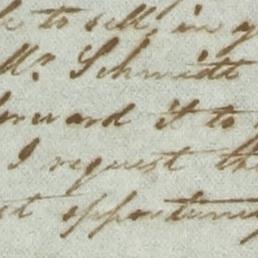 to sell in
Mr. Schmidt
forward it to
I request the
opportunity